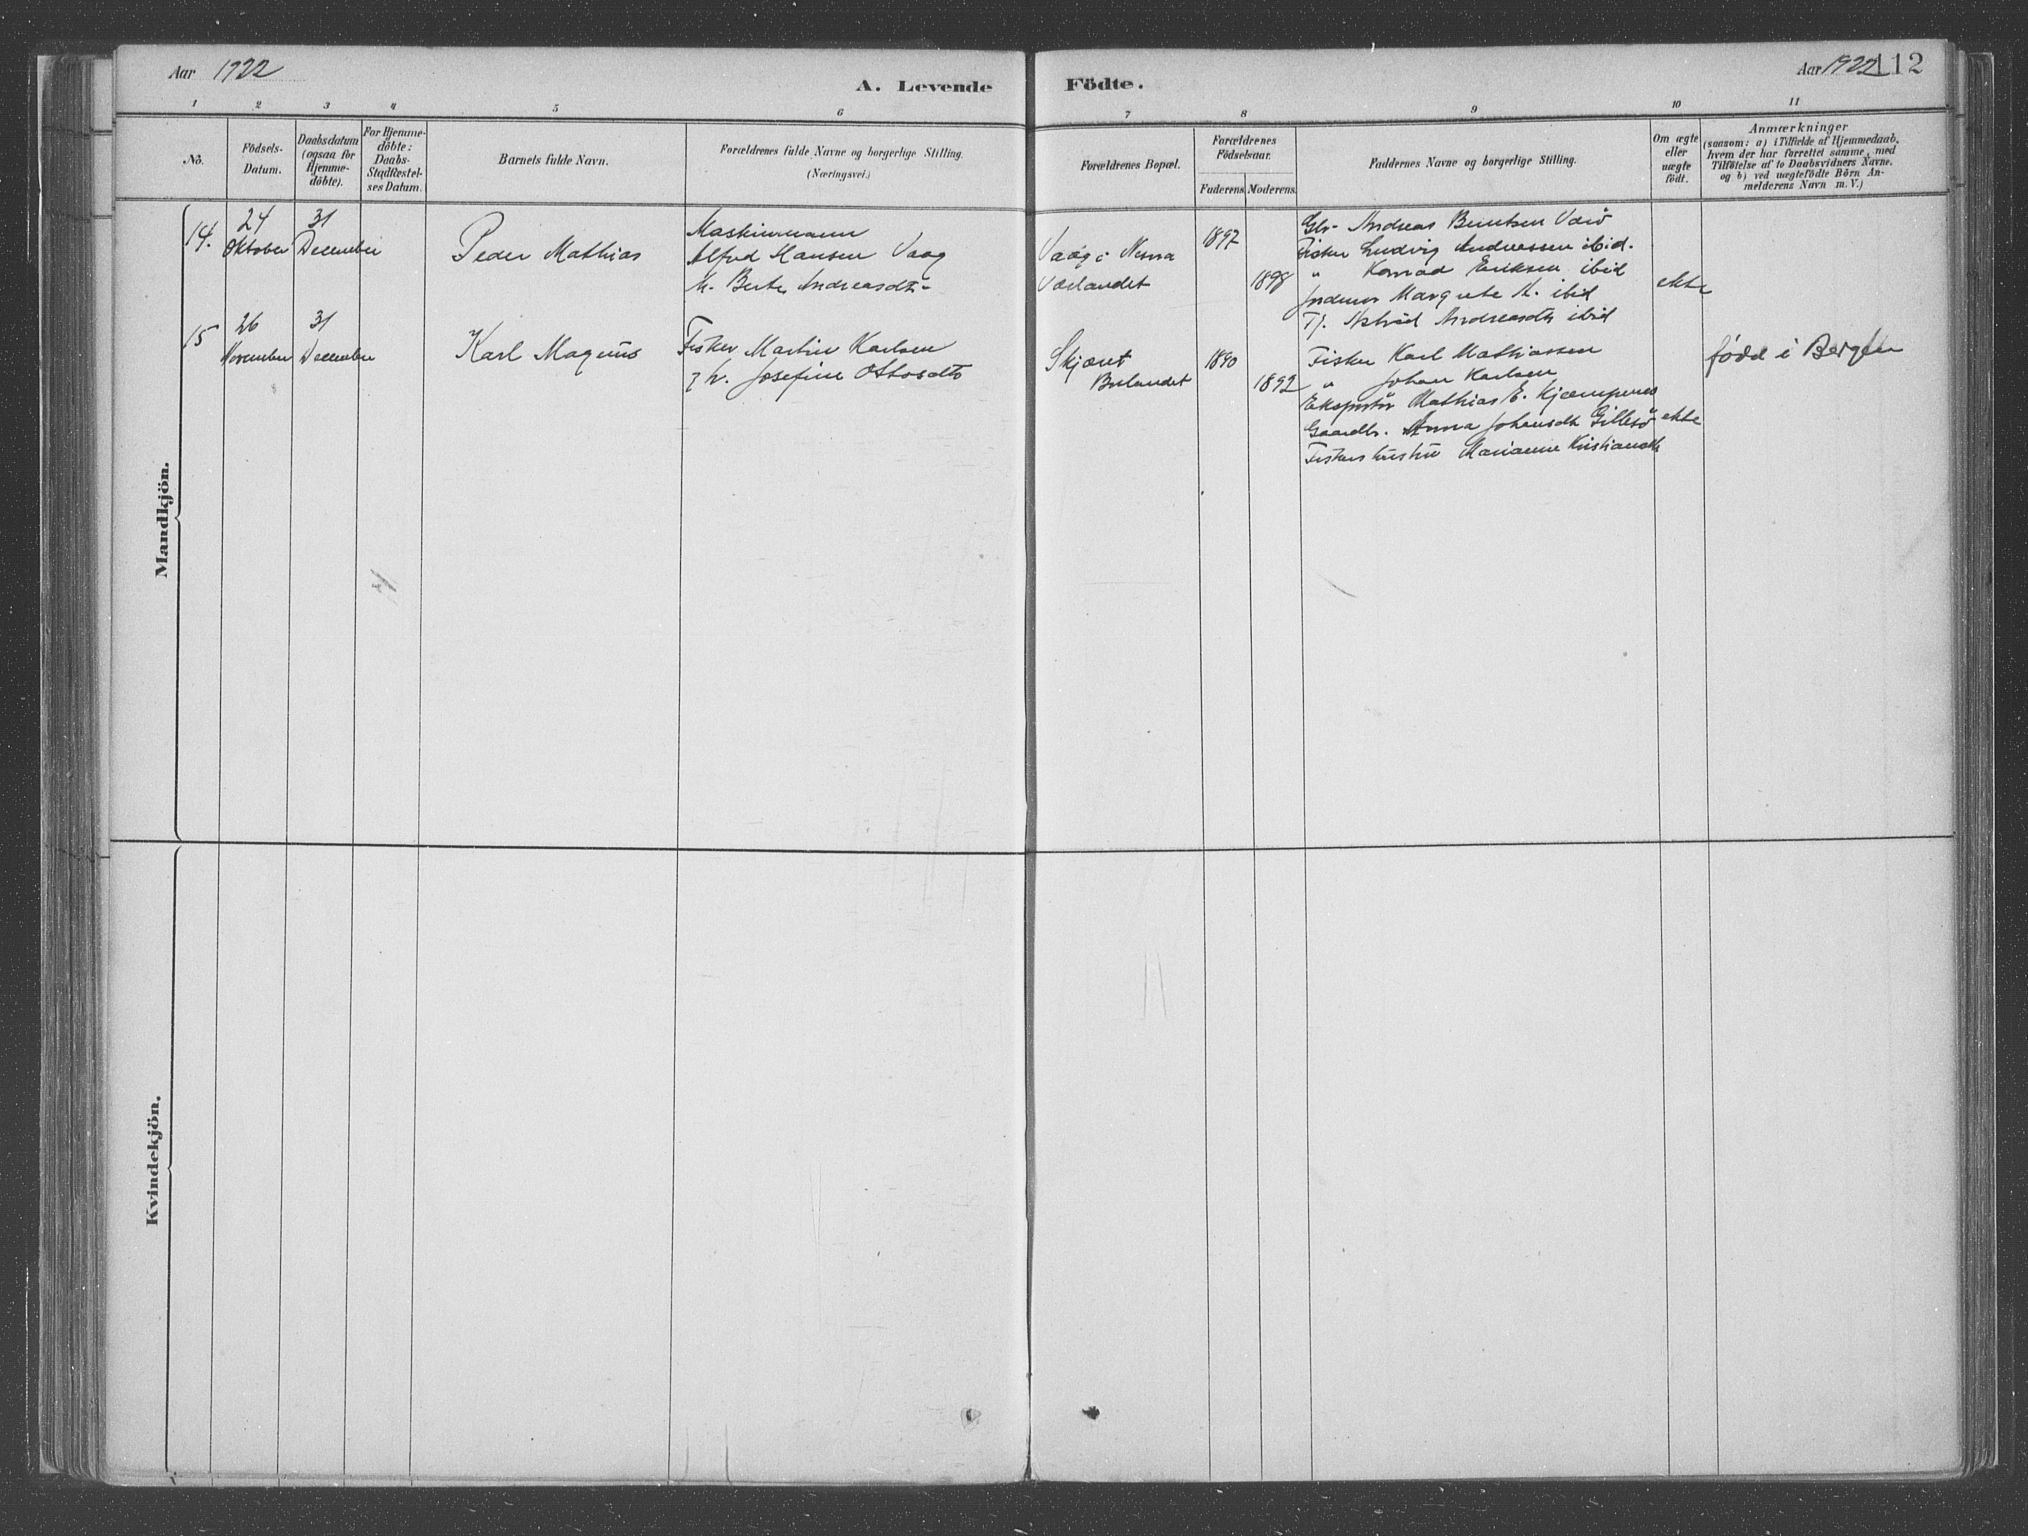 Aar 1922
A. Levende Födte.
Aar 1922 112
1 2 3 4 5 6 7 8 9 10 11
No.
Födsels-
Datum.
Daabsdatum
(ogsaa for
Hjemme-
döbte).
For Hjemme-
döbte:
Daabs-
Stadfæstel-
ses Datum.
Barnets fulde Navn.
Forældrenes fulde Navne og borgerlige Stilling.
(Næringsvei.)
Forældrenes Bopæl.
Forældrenes
Födselsaar.
Faderens. Moderens.
Faddernes Navne og borgerlige Stilling.
Om ægte
eller
uægte
födt.
Anmærkninger
(saasom: a) i Tilfælde af Hjemmedaab,
hvem der har forrettet samme, med
Tilföielse af to Daabsvidners Navne.
og b) ved uægtefödte Börn An-
melderens Navn m. V.)
Mandkjön.
14.
24
Oktober
31
December
Peder Mathias
Maskinmann
Alfred Hansen Vaag
h. Berte Andreasdtr
Vaag i Nesna
Værlandet
1897
1898
Gbr. Andreas Berntsen Værö
Fisker Ludvig Andreassen ibid.
" Konrad Eriksen ibid
Margrete H. ibid
Tj. Astrid Andreasdtr ibid
ekte
15
26
November
31
December
Karl Magnus
Fisker Martin Karlsen
h. Josefine Ottosdtr
Skjæret
Bulandet
1890
1892
Fisker Karl Mathiassen
" Johan Karlsen
Eksportör Mathias E. Kjempenes
Gaardbr. Anna Johansdtr Gillesö
Fiskers hustru Marianne Kristiansdtr
ekte
född i Bergen
Kvindekjön.